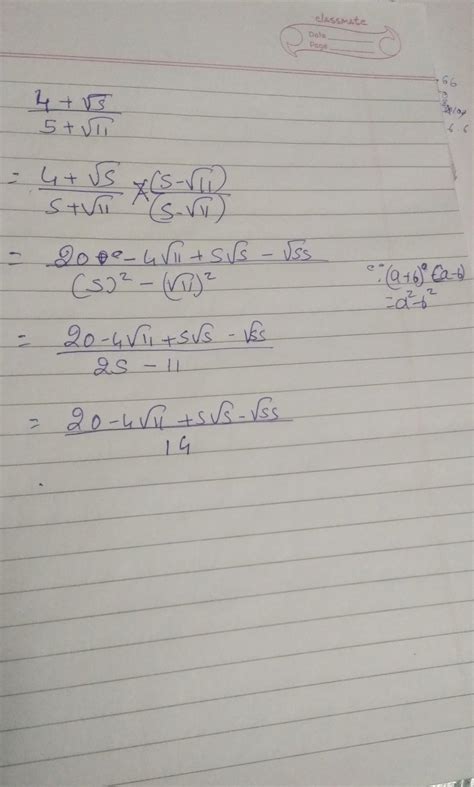 classmate
Date
Page
66
4 + √5 / 5 + √11
= 4 + √5 / 5 + √11 × (5 - √11) / (5 - √11)
= 20 - 4√11 + 5√5 - √55 / (5)² - (√11)²
∵ (a+b) (a-b)
= a² - b²
= 20 - 4√11 + 5√5 - √55 / 25 - 11
= 20 - 4√11 + 5√5 - √55 / 14